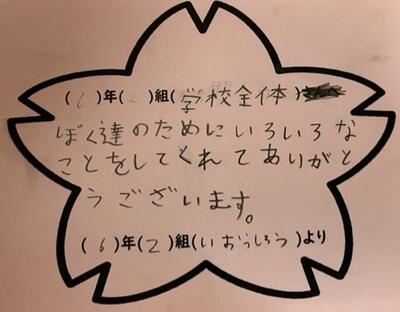 ( )年( )組(学校全体)
ぼく達のためにいろいろな
ことをしてくれてありがと
うございます。
(6)年(2)組(いおうしろう)より